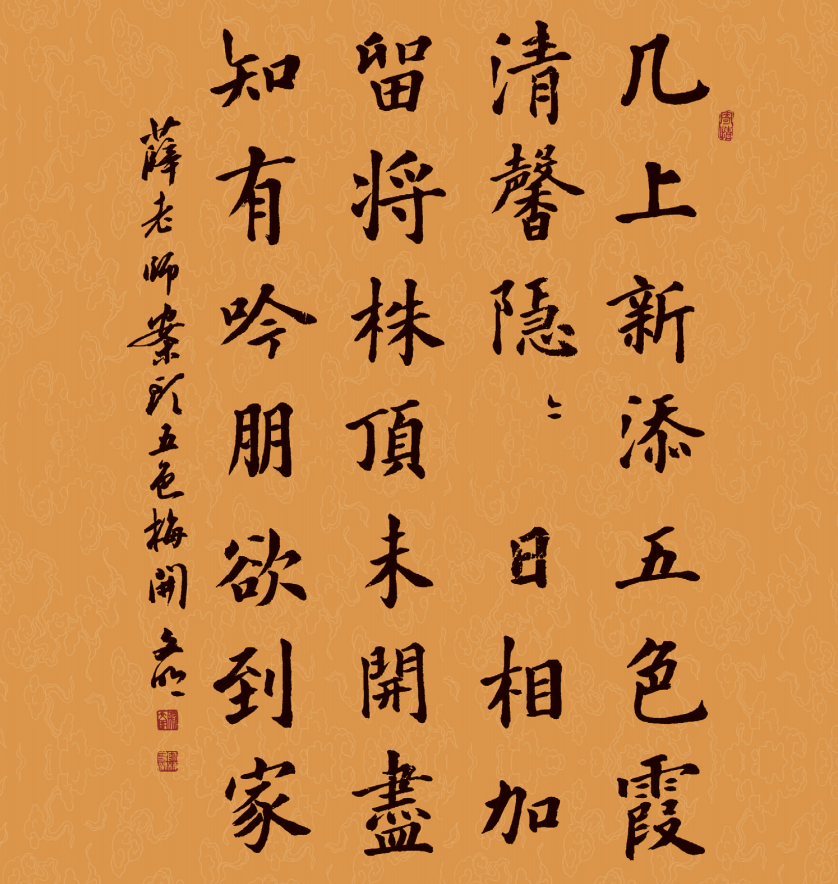 几上新添五色霞
清馨隐〻日相加
留将株頂未開盡
知有吟朋欲到家
薛老师案头五色梅開 文明